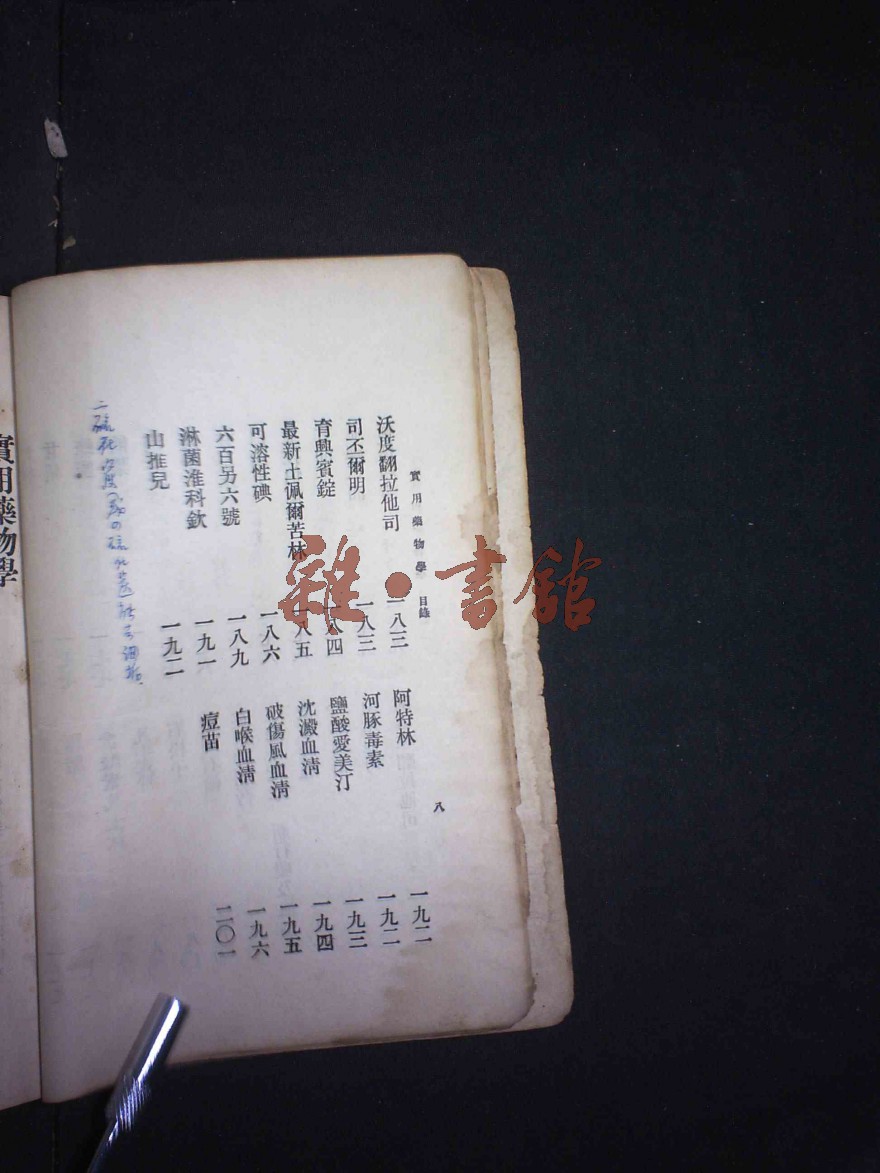 實用藥物學 目錄 八
沃度翻拉他司 一八三
司丕爾明 一八三
育興賓錠 一八四
最新土佩爾苦林 一八五
可溶性碘 一八六
六百另六號 一八九
淋菌淮科欽 一九一
山推兒 一九二
阿特林 一九二
河豚毒素 一九二
鹽酸愛美汀 一九三
沈澱血清 一九四
破傷風血清 一九五
白喉血清 一九六
痘苗 二〇一
實用藥物學
雜·書館